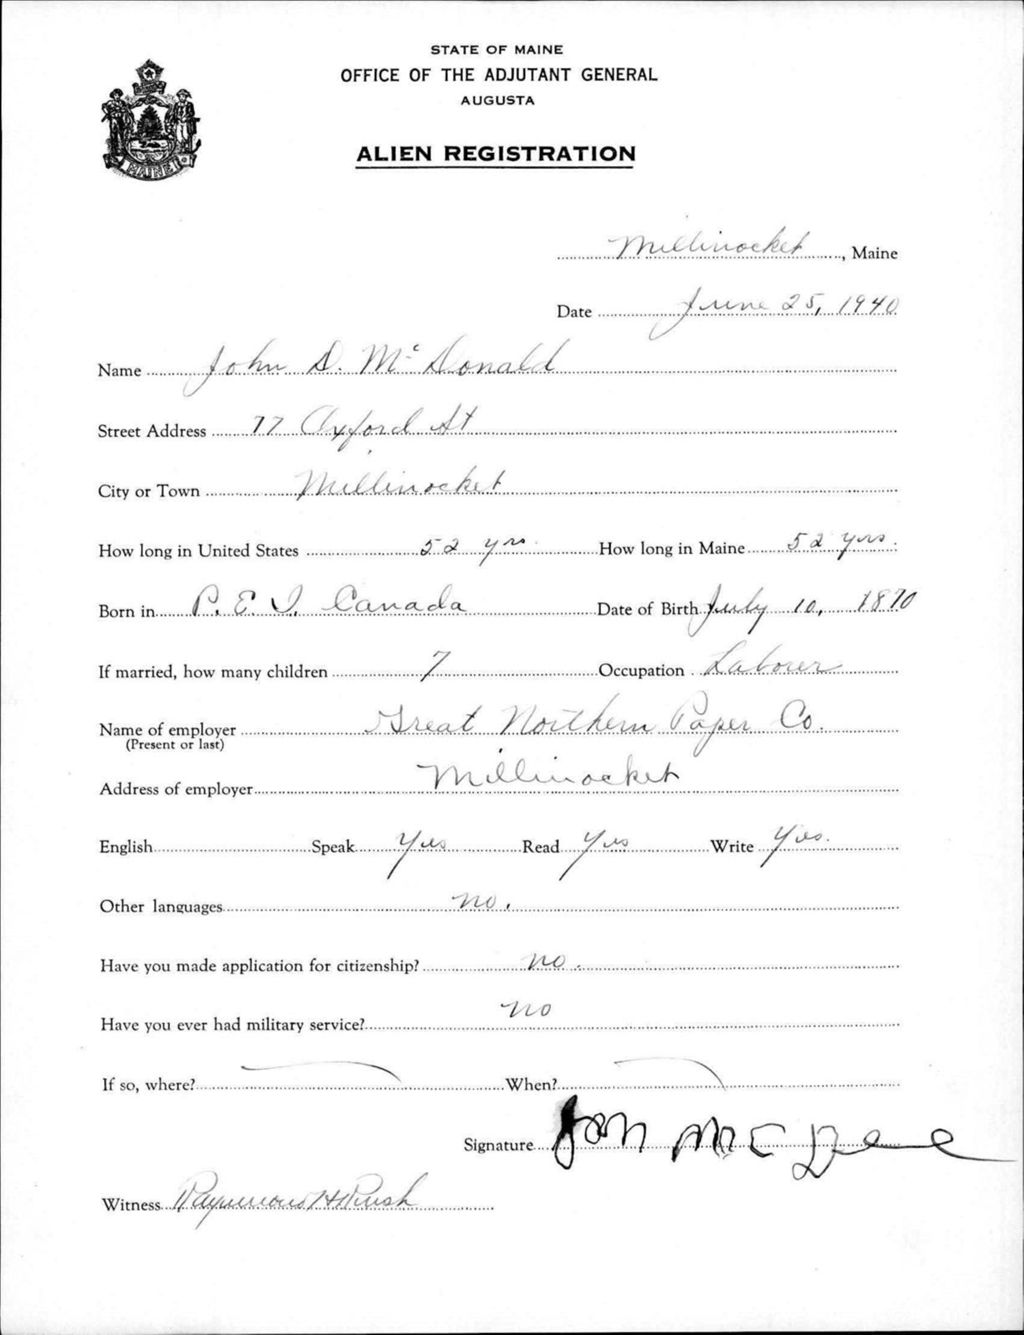 STATE OF MAINE
OFFICE OF THE ADJUTANT GENERAL
AUGUSTA
ALIEN REGISTRATION
MAINE
Millinocket, Maine
Date June 25, 1940
Name John D. McDonald
Street Address 77 Oxford St
City or Town Millinocket
How long in United States 52 yrs. How long in Maine 52 yrs.
Born in P. E. I. Canada Date of Birth July 10, 1870
If married, how many children 7 Occupation Laborer
Name of employer Great Northern Paper Co.
(Present or last)
Address of employer Millinocket
English Speak Yes Read Yes Write Yes.
Other languages no.
Have you made application for citizenship? no.
Have you ever had military service? no
If so, where? When?
Signature John McD
Witness Raymond H Rush